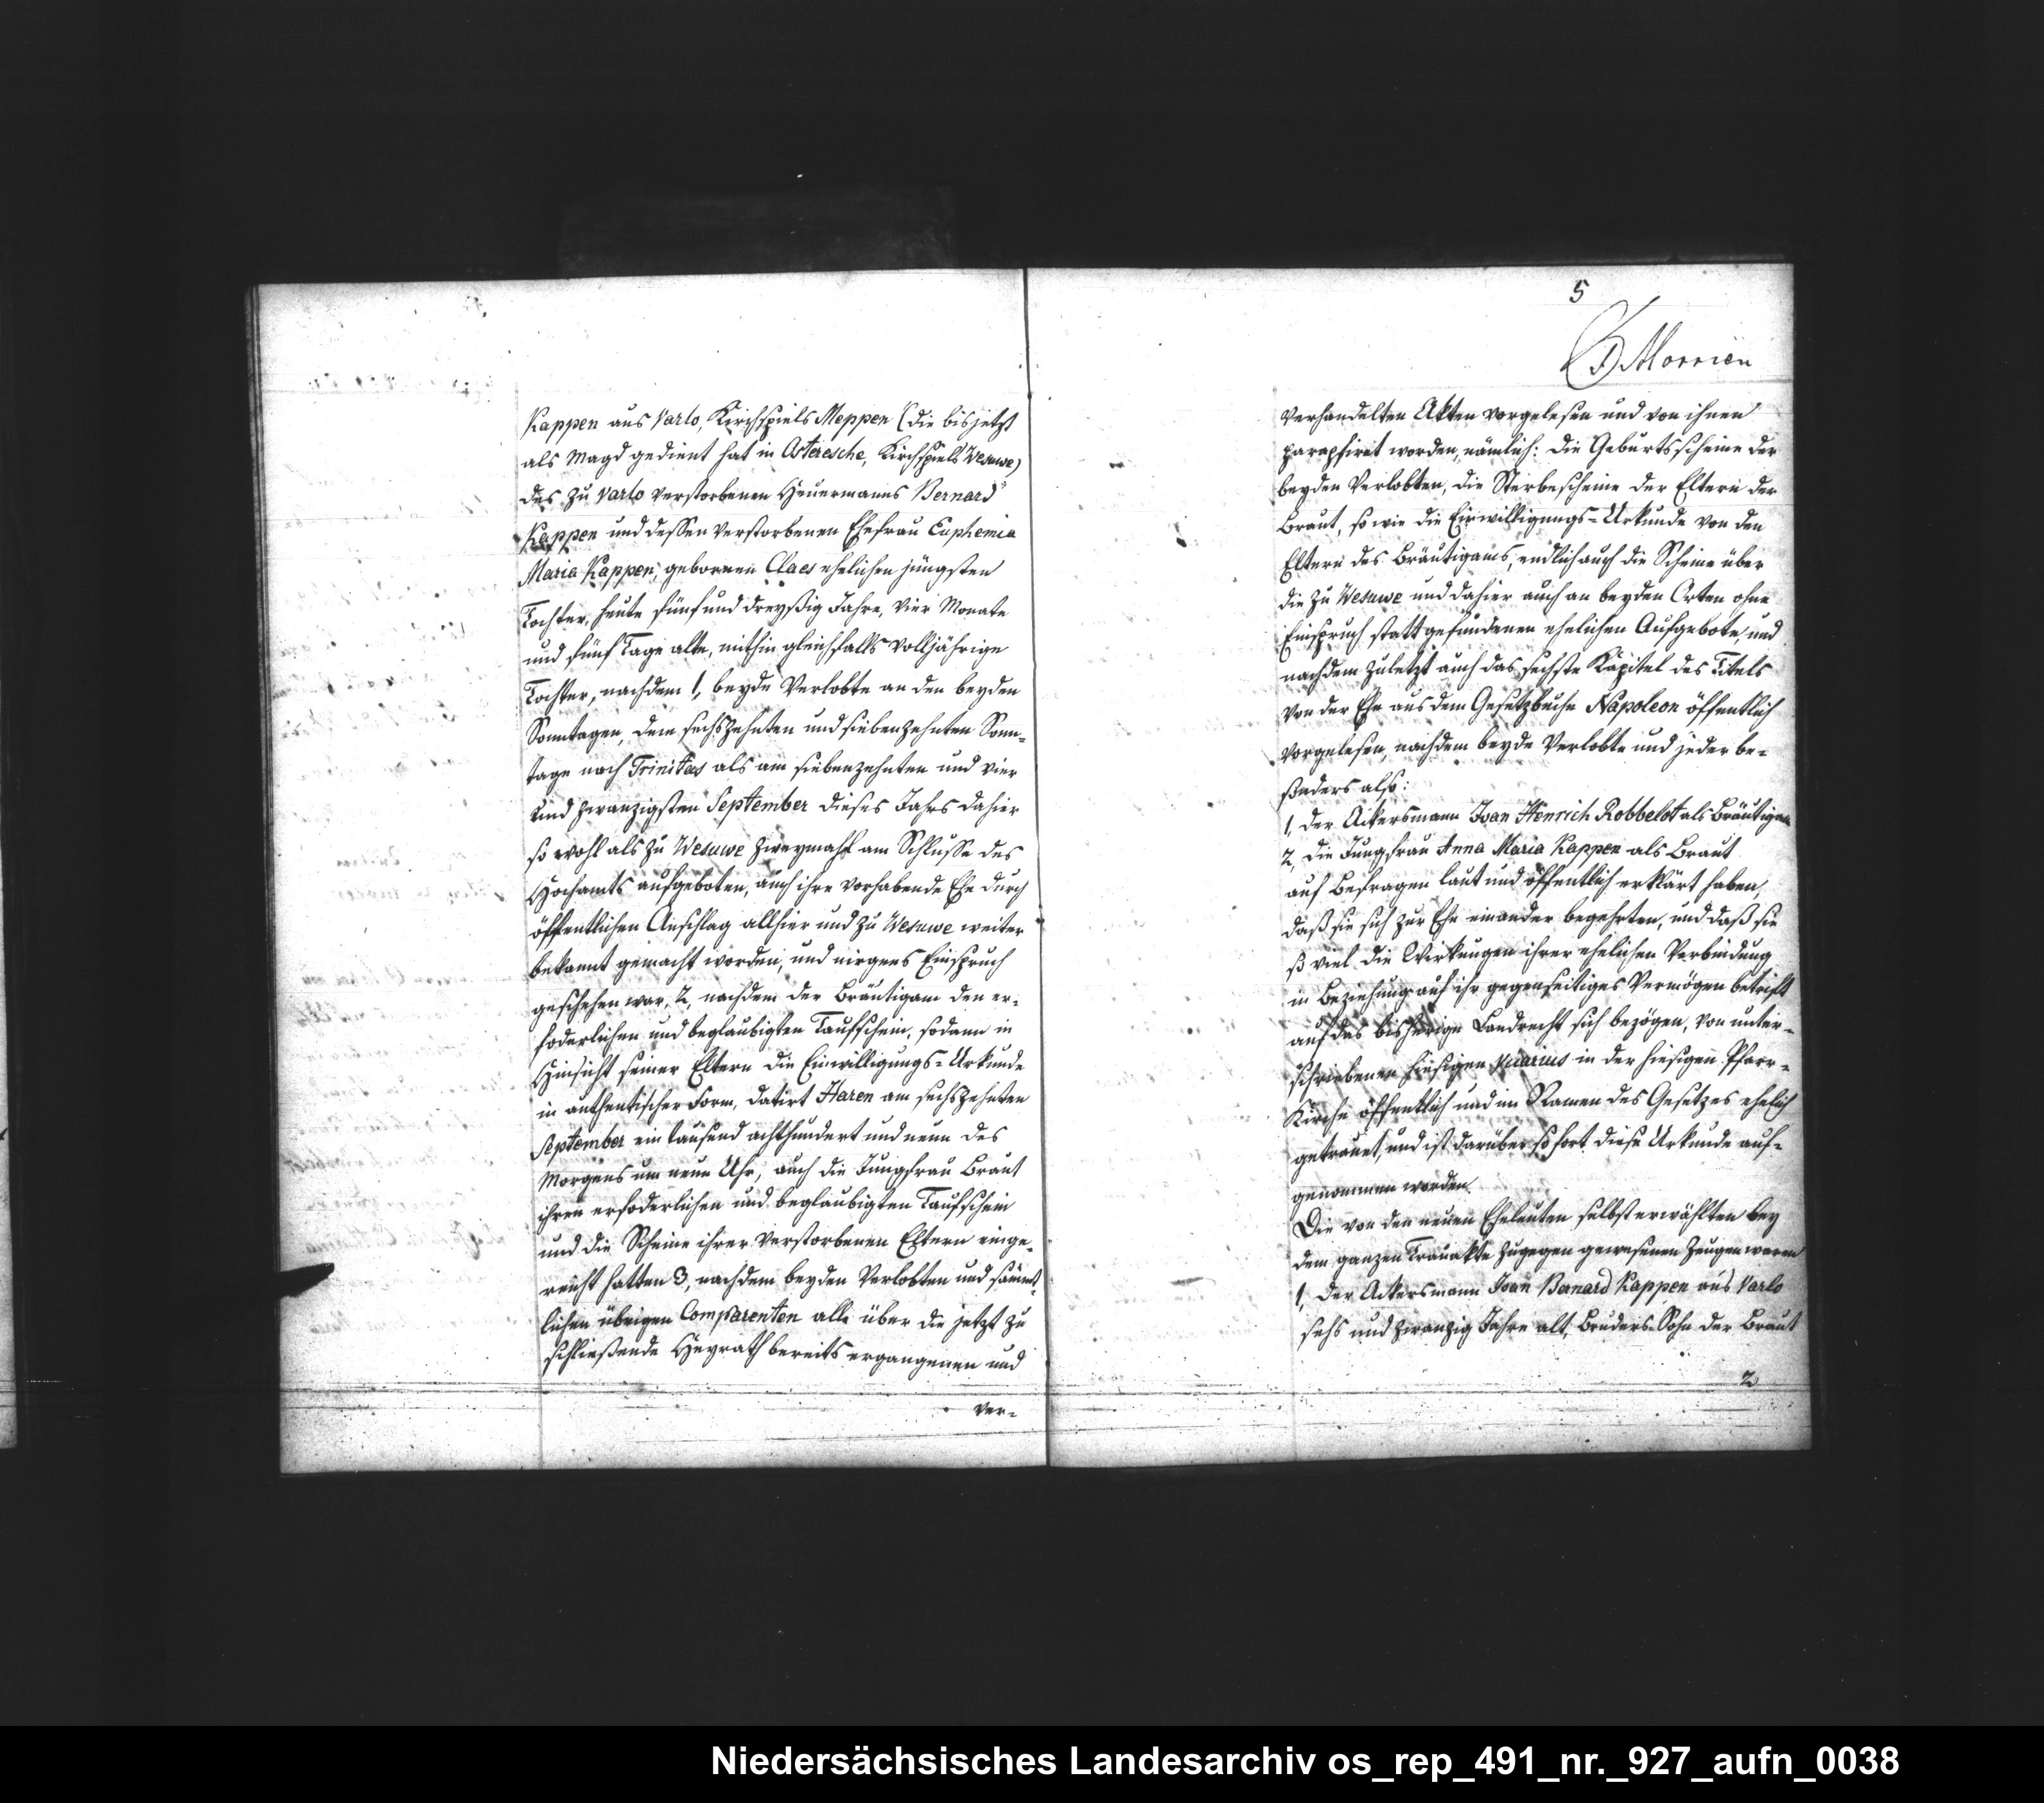 Kappen aus Varlo, Kirchspiels Meppen (die bis jetzt
als Magd gedient hat in Osteresche, Kirchspiels Wesuwe)
des zu Varlo verstorbenen Heuermanns Bernard
Kappen und dessen verstorbenen Ehefrau Euphemia
Maria Kappen, gebornen Claes ehelichen jüngsten
Tochter, heute fünf und dreyßig Jahre, vier Monate
und fünf Tage alte, mithin gleichfalls volljährige
Tochter, nachdem 1, beyde Verlobte an den beyden
Sonntagen, dem sechszehnten und siebenzehnten Sonn-
tage nach Trinitas als am siebenzehnten und vier
und zwanzigsten September dieses Jahrs dahier
so wohl als zu Wesuwe zweymahl am Schlusse des
Hochamts aufgeboten, auch ihre vorhabende Ehe durch
öffentlichen Anschlag allhier und zu Wesuwe weiter
bekannt gemacht worden, und nirgens Einspruch
geschehen war, 2, nachdem der Bräutigam den er-
foderlichen und beglaubigten Taufschein, sodann in
Hinsicht seiner Eltern die Einwilligungs-Urkunde
in authentischer Form, datirt Haren am sechszehnten
September ein tausend achthundert und neun des
Morgens um neun Uhr, auch die Jungfrau Braut
ihren erfoderlichen und beglaubigten Taufschein
und die Scheine ihrer verstorbenen Eltern einge-
reicht hatten 3, nachdem beyden Verlobten und sämmt-
lichen übrigen Comparenten alle über die jetzt zu
schließende Heyrath bereits ergangenen und
ver-
5
Morrien
verhandelten Akten vorgelesen und von ihnen
paraphirt worden, nämlich: die Geburtsscheine der
beyden Verlobten, die Sterbescheine der Eltern der
Braut, so wie die Einwilligungs-Urkunde von den
Eltern des Bräutigams, endlich auch die Scheine über
die zu Wesuwe und dahier auch an beyden Orten ohne
Einspruch statt gefundenen ehelichen Aufgebote, und
nachdem zuletzt auch das sechste Kapitel des Titels
von der Ehe aus dem Gesetzbuche Napoleon öffentlich
vorgelesen, nachdem beyde Verlobte und jeder be-
sonders also:
1, der Ackersmann Joan Henrich Robbelot als Bräutigam
2, die Jungfrau Anna Maria Kappen als Braut
auf Befragen laut und öffentlich erklärt haben,
daß sie sich zur Ehe einander begehrten, und daß sie
so viel die Wirkungen ihrer ehelichen Verbindung
in Beziehung auf ihr gegenseitiges Vermögen betrift
auf das bisherige Landrecht sich bezögen, von unter-
schriebenen hiesigen Vicarius in der hiesigen Pfarr-
Kirche öffentlich und im Namen des Gesetzes ehelich
getrauet, und ist darüber so fort diese Urkunde auf-
genommen worden.
Die von den neuen Eheleuten selbst erwählten bey
dem ganzen Trauakte zugegen gewesenen Zeugen waren
1, der Ackersmann Joan Bernard Kappen aus Varlo
sechs und zwanzig Jahre alt, Bruders Sohn der Braut
2
Niedersächsisches Landesarchiv os_rep_491_nr._927_aufn_0038